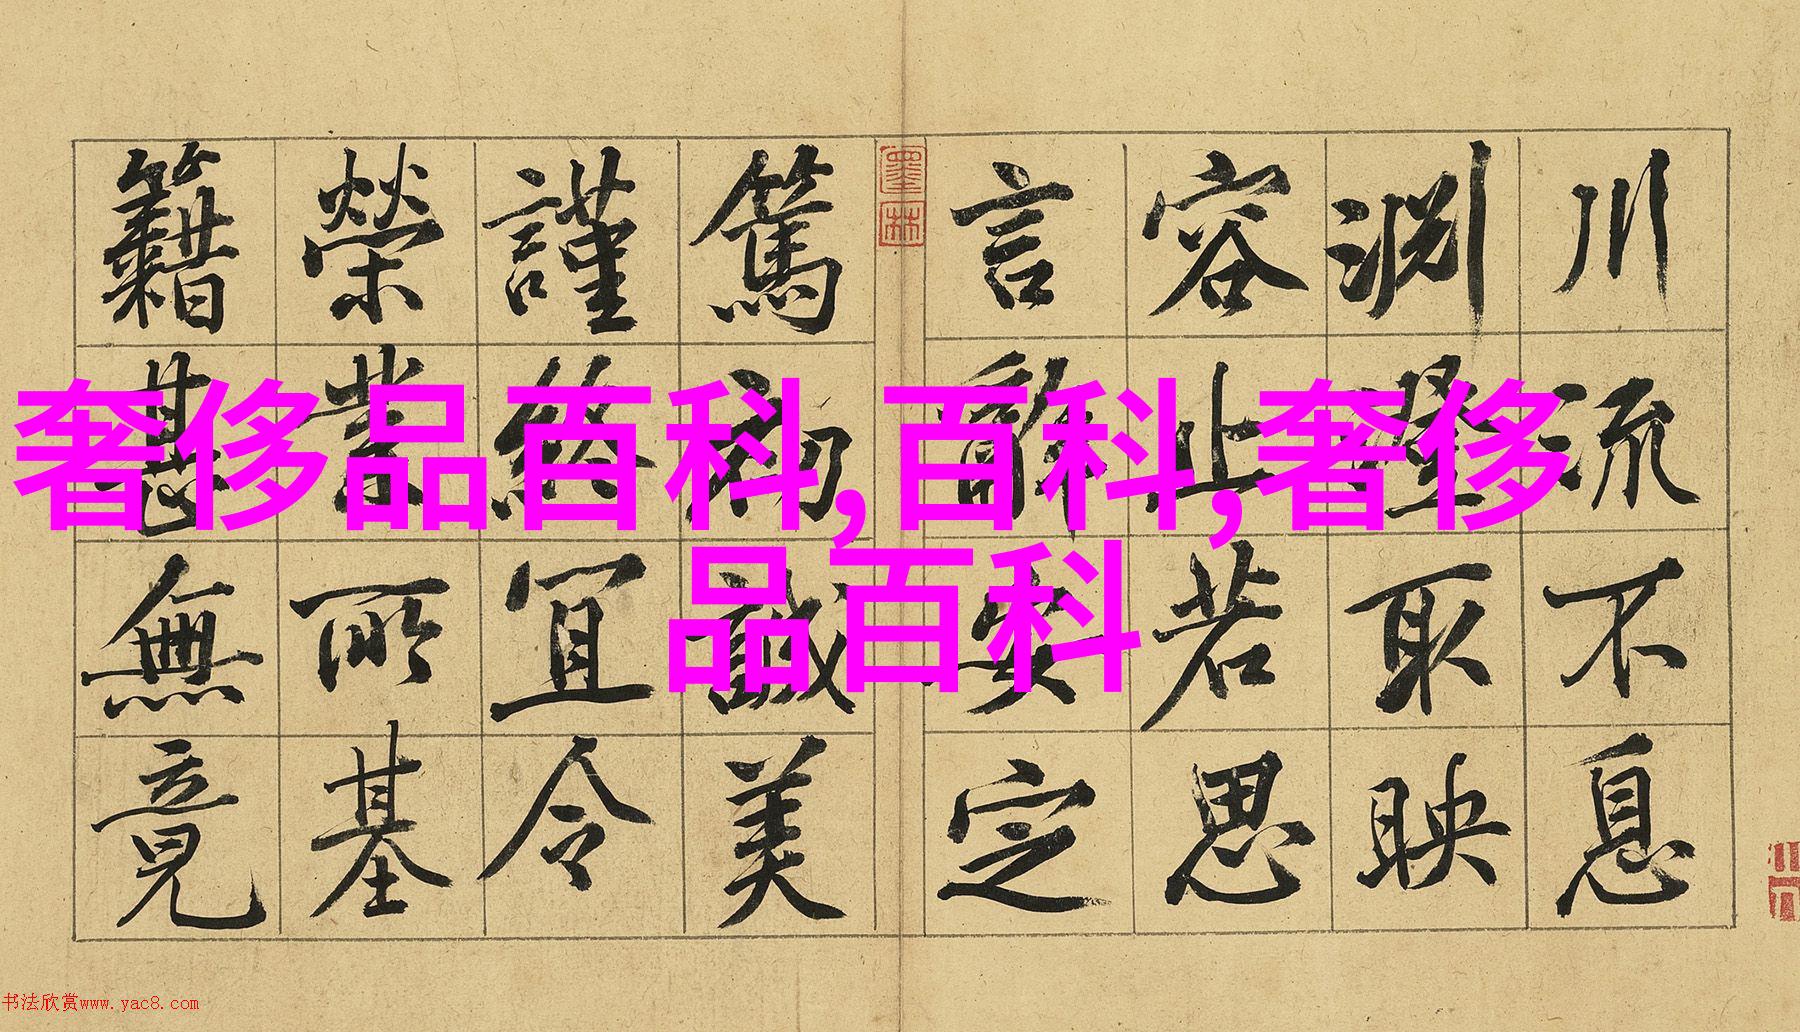 川流不息
淵澄取映
容止若思
言辭安定
墨林
篤初誠美
謹終宜令
榮業所基
籍甚無竟
奢侈品百科,百科,奢侈
品百科
书法欣赏www.yac8.com